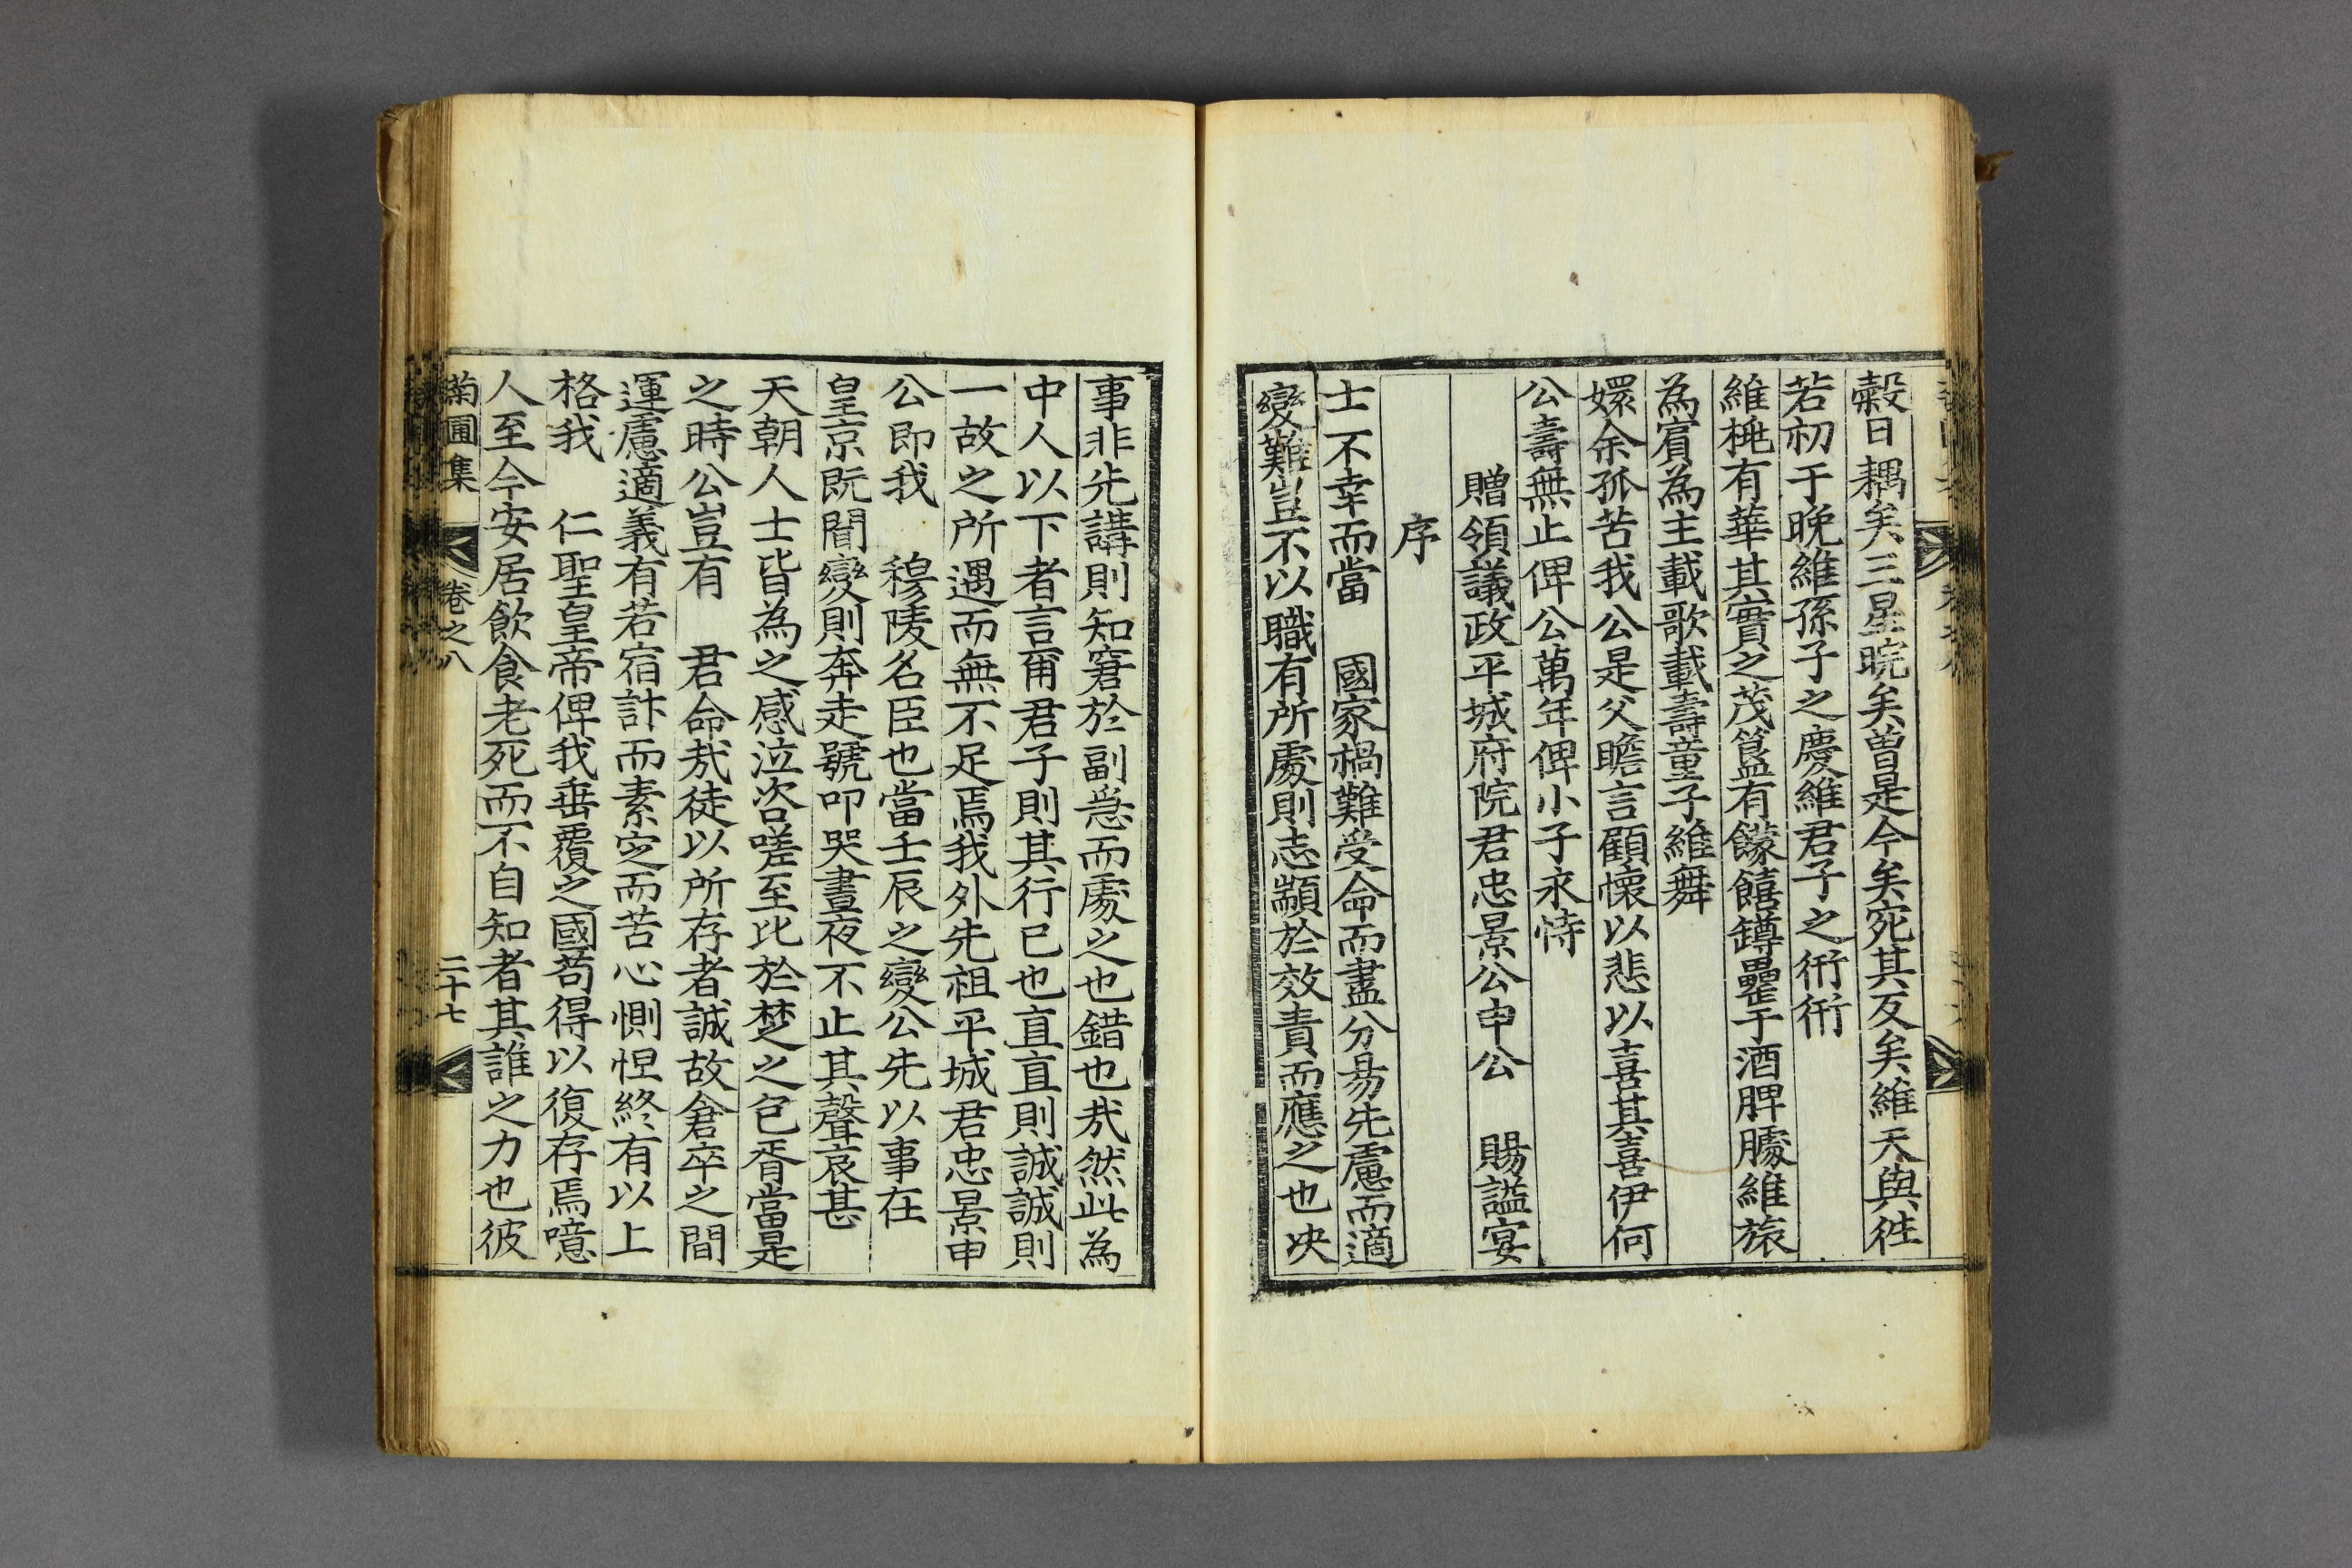 糓日耦矣三星晥矣曾是今矣宛其反矣維天與徃
若初于晚維孫子之慶維君子之衎衎
維桃有華其實之茂簋有饛饎罇罍于酒脾臄維旅
為賓為主載歌載壽童子維舞
嬛余孤苦我公是父瞻言顧懷以悲以喜其喜伊何
公壽無止俾公萬年俾小子永恃
贈領議政平城府院君忠景公申公 賜諡宴
序
士不幸而當 國家禍難受命而盡分易先慮而適
變難豈不以職有所處則志顓於效責而應之也决
事非先講則知窘於副急而處之也錯也㢤然此為
中人以下者言甭君子則其行已也直直則誠誠則
一故之所遇而無不足焉我外先祖平城君忠景申
公即我 穆陵名臣也當壬辰之變公先以事在
皇京既聞變則奔走號叩哭晝夜不止其聲哀甚
天朝人士皆為之感泣咨嗟至比於楚之包胥當是
之時公豈有 君命㢤徒以所存者誠故倉卒之間
運慮適義有若宿計而素定而苦心惻怛終有以上
格我 仁聖皇帝俾我垂覆之國苟得以復存焉噫
人至今安居飲食老死而不自知者其誰之力也彼
菊圃集 卷之八 二十七